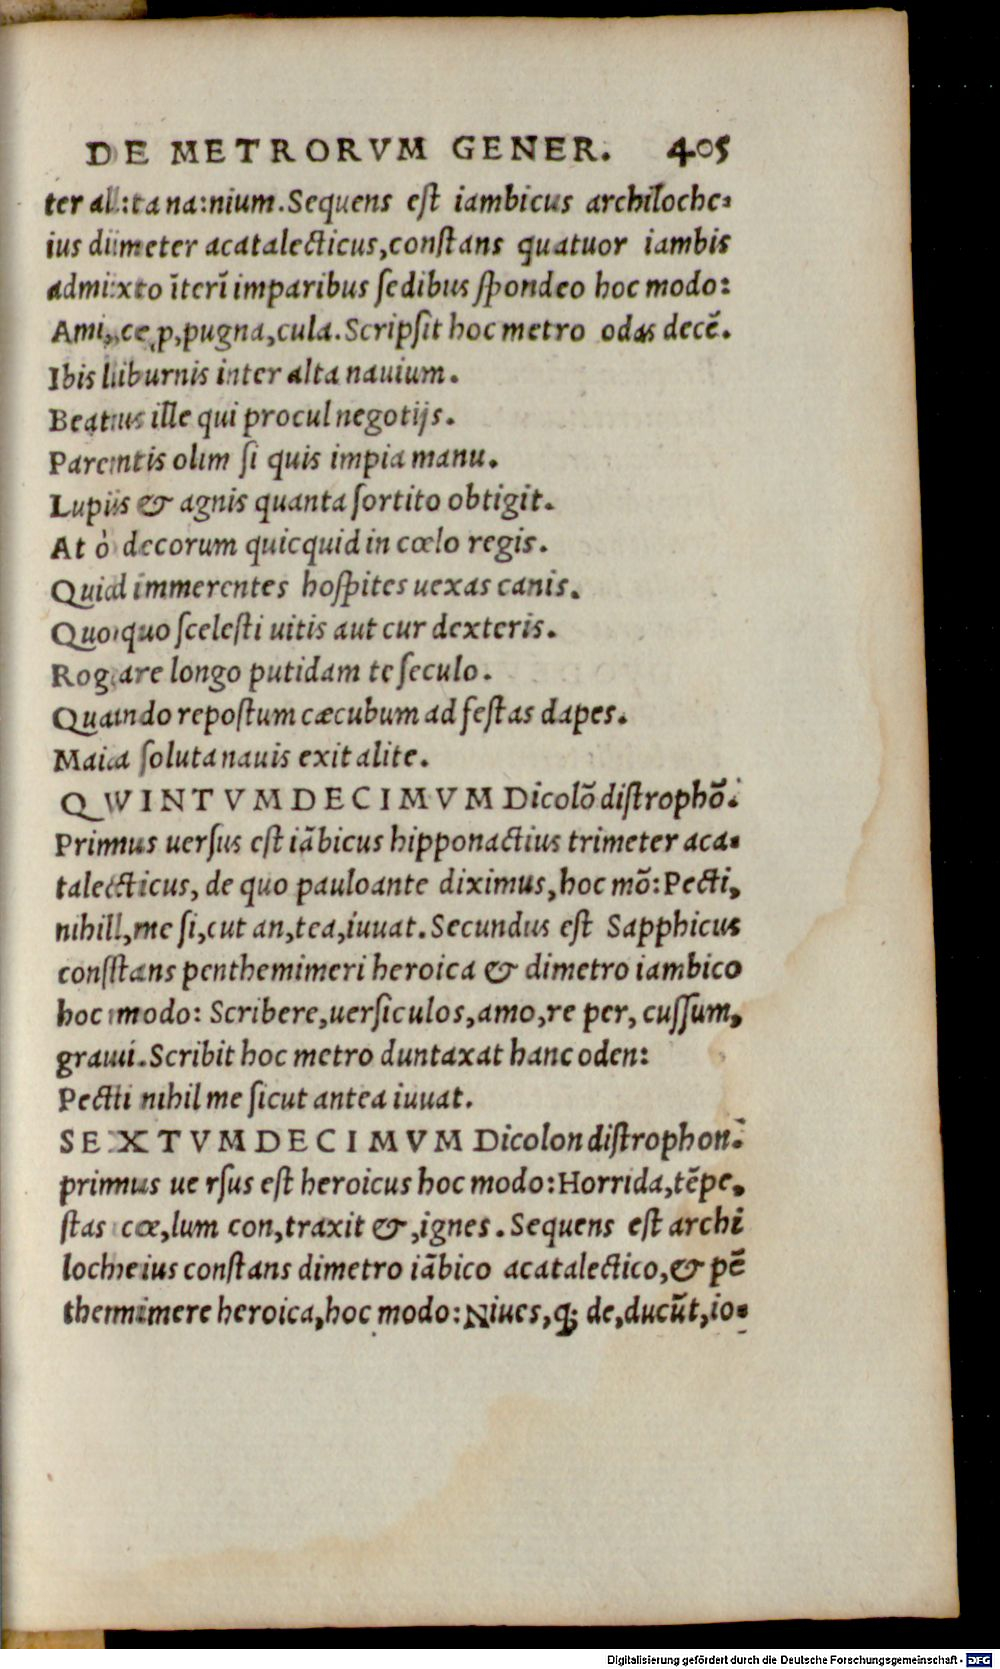 DE METRORVM GENER. 405
ter alta nauium. Sequens est iambicus archiloche-
ius dimeter acatalecticus, constans quatuor iambis
admixto īterī imparibus sedibus spondeo hoc modo:
Ami,ce,p,pugna,cula. Scripsit hoc metro odas decē.
Ibis liburnis inter alta nauium.
Beatus ille qui procul negotijs.
Parentis olim si quis impia manu.
Lupis & agnis quanta sortito obtigit.
At ò decorum quicquid in cœlo regis.
Quid immerentes hospites uexas canis.
Quo quo scelesti uitis aut cur dexteris.
Rogare longo putidam te seculo.
Quando repostum cæcubum ad festas dapes.
Mala soluta nauis exit alite.
QVINTVMDECIMVM Dicolō distrophō.
Primus uersus est iābicus hipponactius trimeter aca-
talecticus, de quo pauloante diximus, hoc mō: Pecti,
nihil,me si,cut an,tea,iuuat. Secundus est Sapphicus
constans penthemimeri heroica & dimetro iambico
hoc modo: Scribere,uersiculos,amo,re per, cussum,
graui. Scribit hoc metro duntaxat hanc oden:
Pecti nihil me sicut antea iuuat.
SEXTVMDECIMVM Dicolon distrophon.
primus ue rsus est heroicus hoc modo: Horrida,tēpe,
stas cœ,lum con,traxit &,ignes. Sequens est archi
locheius constans dimetro iābico acatalectico,& pē
themimere heroica,hoc modo: Niues,q; de,ducūt,io-
Digitalisierung gefördert durch die Deutsche Forschungsgemeinschaft - DFG